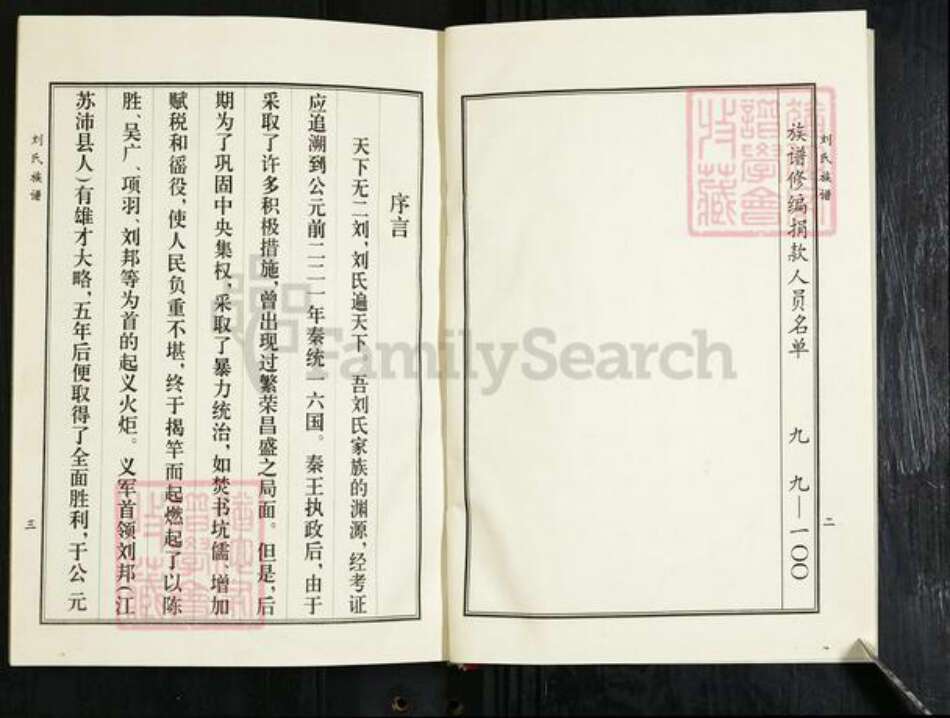 刘氏族谱
二
族谱修编捐款人员名单 九 九—一〇〇
序言
天下无二刘,刘氏遍天下。吾刘氏家族的渊源,经考证
应追溯到公元前二二一年秦统一六国。秦王执政后,由于
采取了许多积极措施,曾出现过繁荣昌盛之局面。但是,后
期为了巩固中央集权,采取了暴力统治,如焚书坑儒、增加
赋税和徭役,使人民负重不堪,终于揭竿而起燃起了以陈
胜、吴广、项羽、刘邦等为首的起义火炬。义军首领刘邦(江
苏沛县人)有雄才大略,五年后便取得了全面胜利,于公元
刘氏族谱
三
FamilySearch